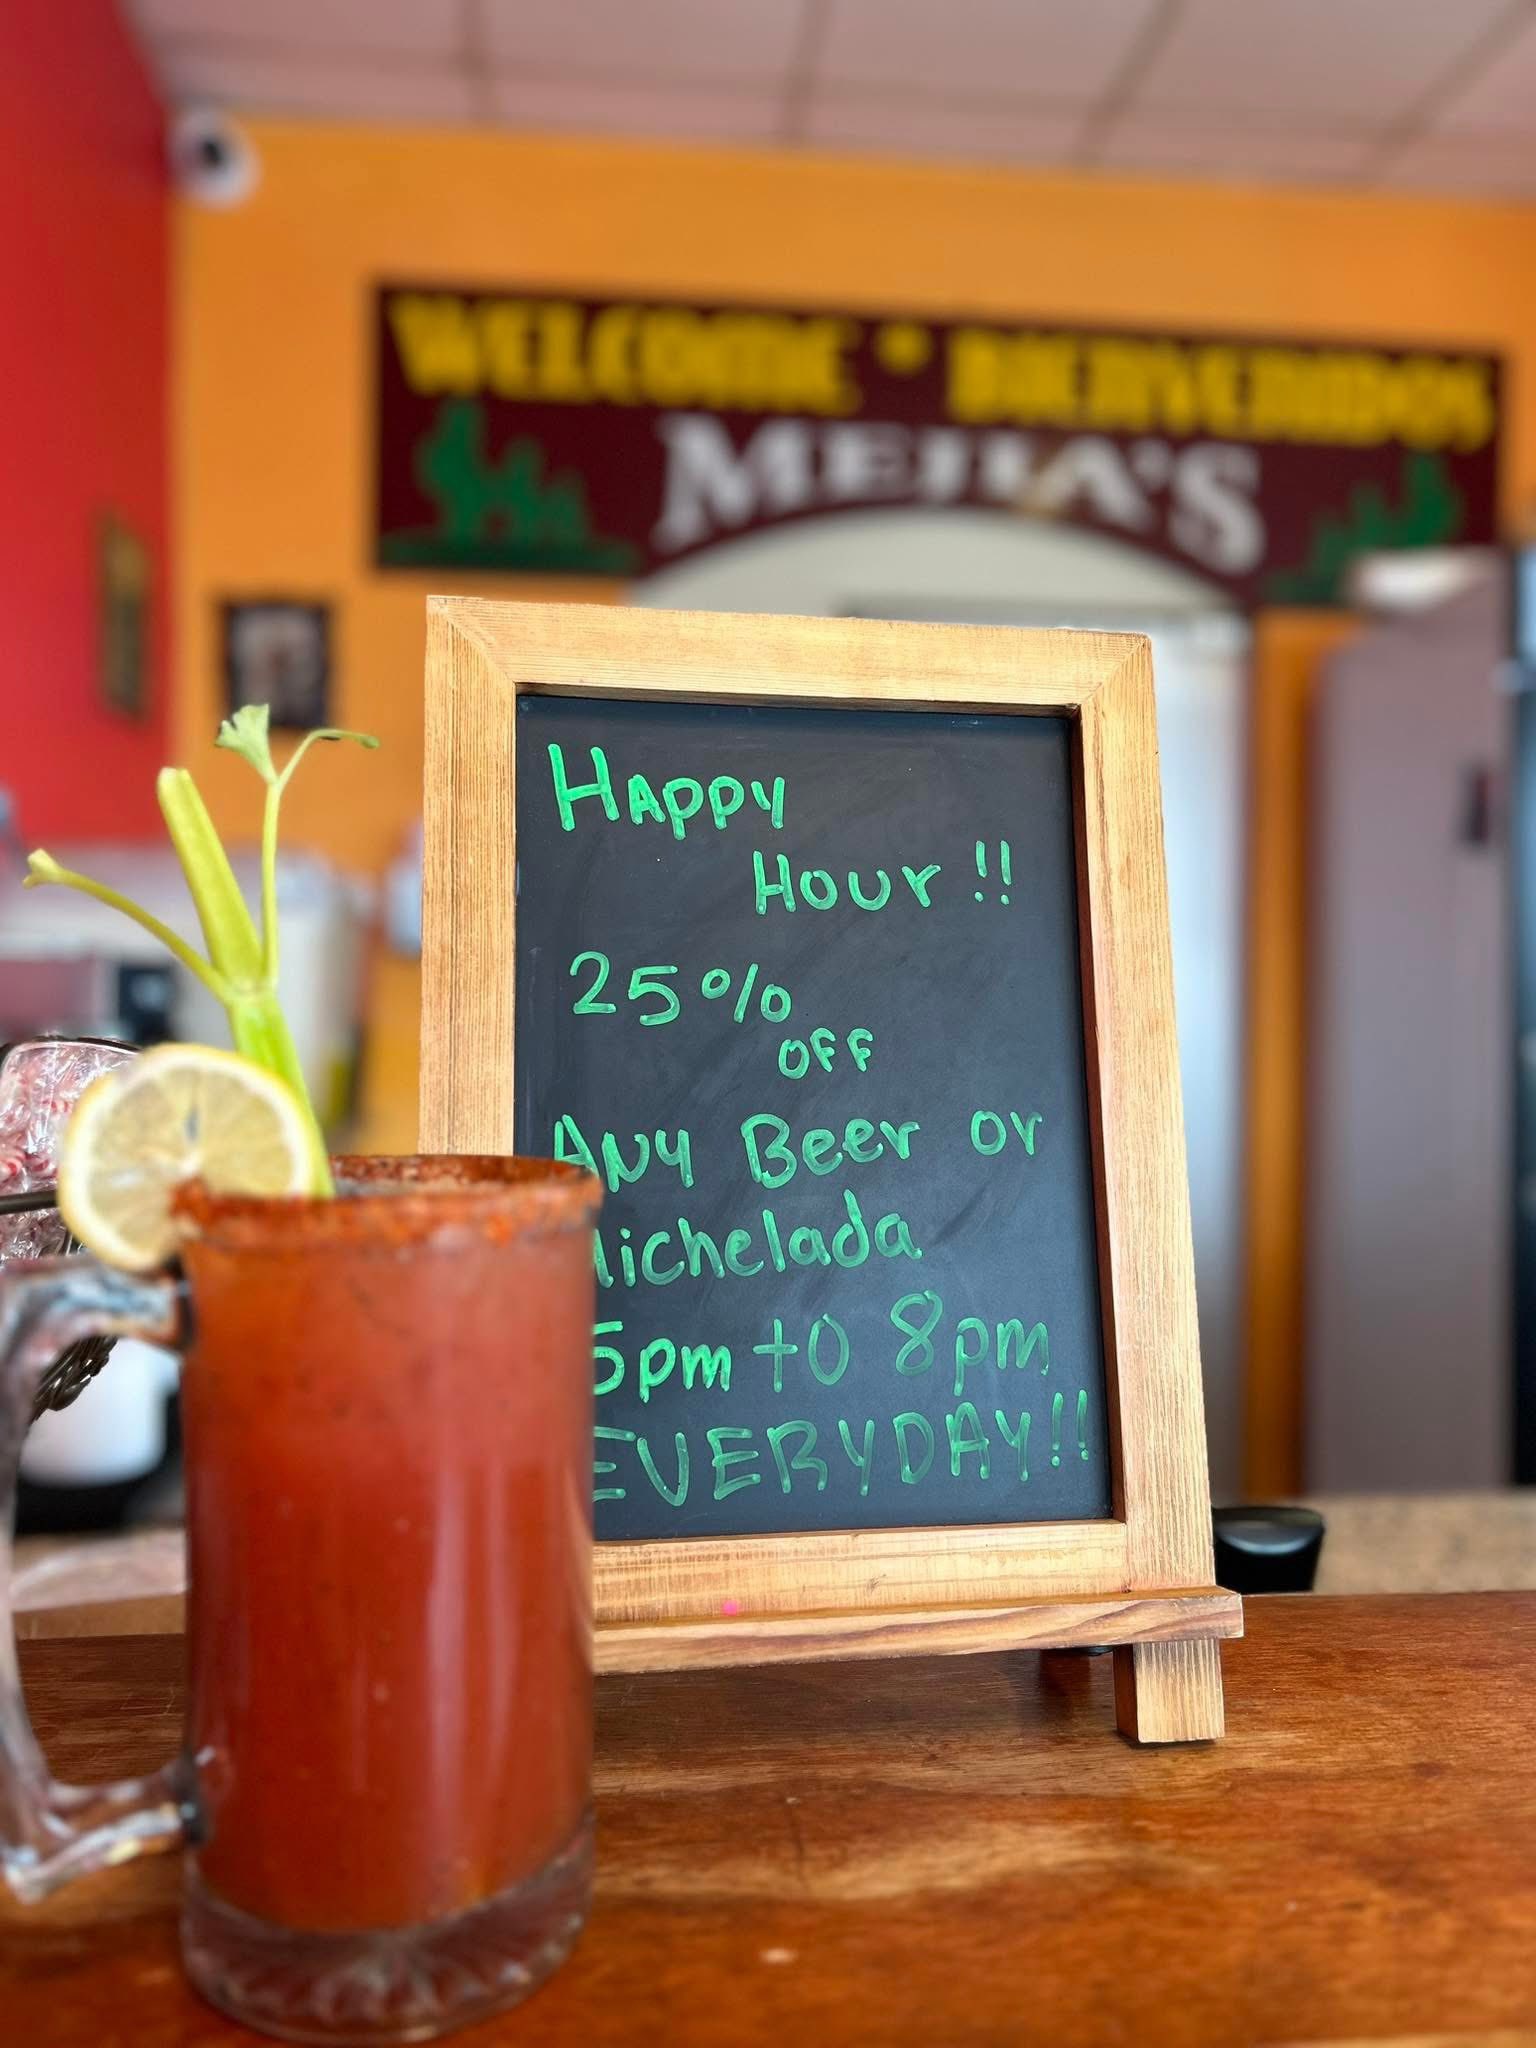 WELCOME * BIENVENIDOS
MEJIA'S
HAPPY
Hour !!
25%
OFF
ANY Beer or
Michelada
5pm to 8pm
EVERYDAY!!